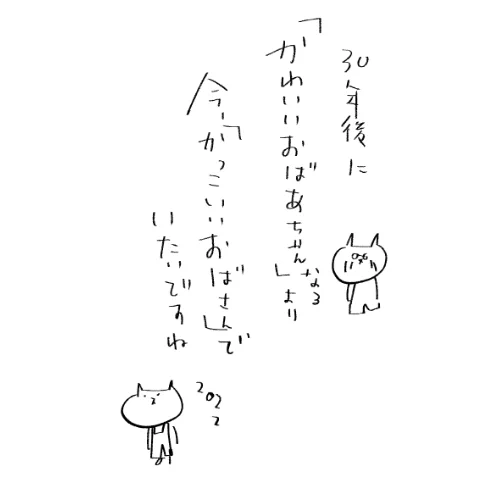 30年後に
「かわいいおばあちゃん」なるより
今、「かっこいいおばさん」で
いたいですね
2022